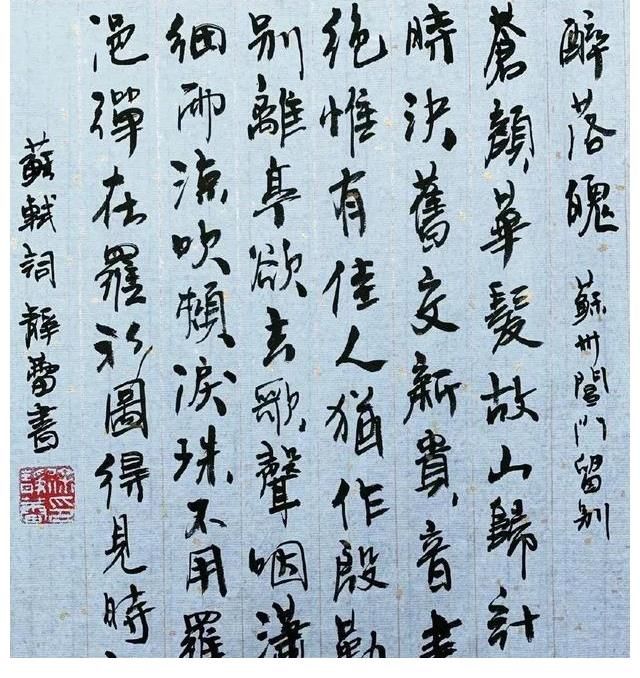 醉落魄 蘇州閶門留別
蒼顏華髮故山歸計
時決舊交新貴音書
絕惟有佳人猶作殷勤
別離亭欲去歌聲咽瀟
細雨涼吹頰淚珠不用羅
浥彈在羅衫圖得見時
蘇軾詞 靜蕾書